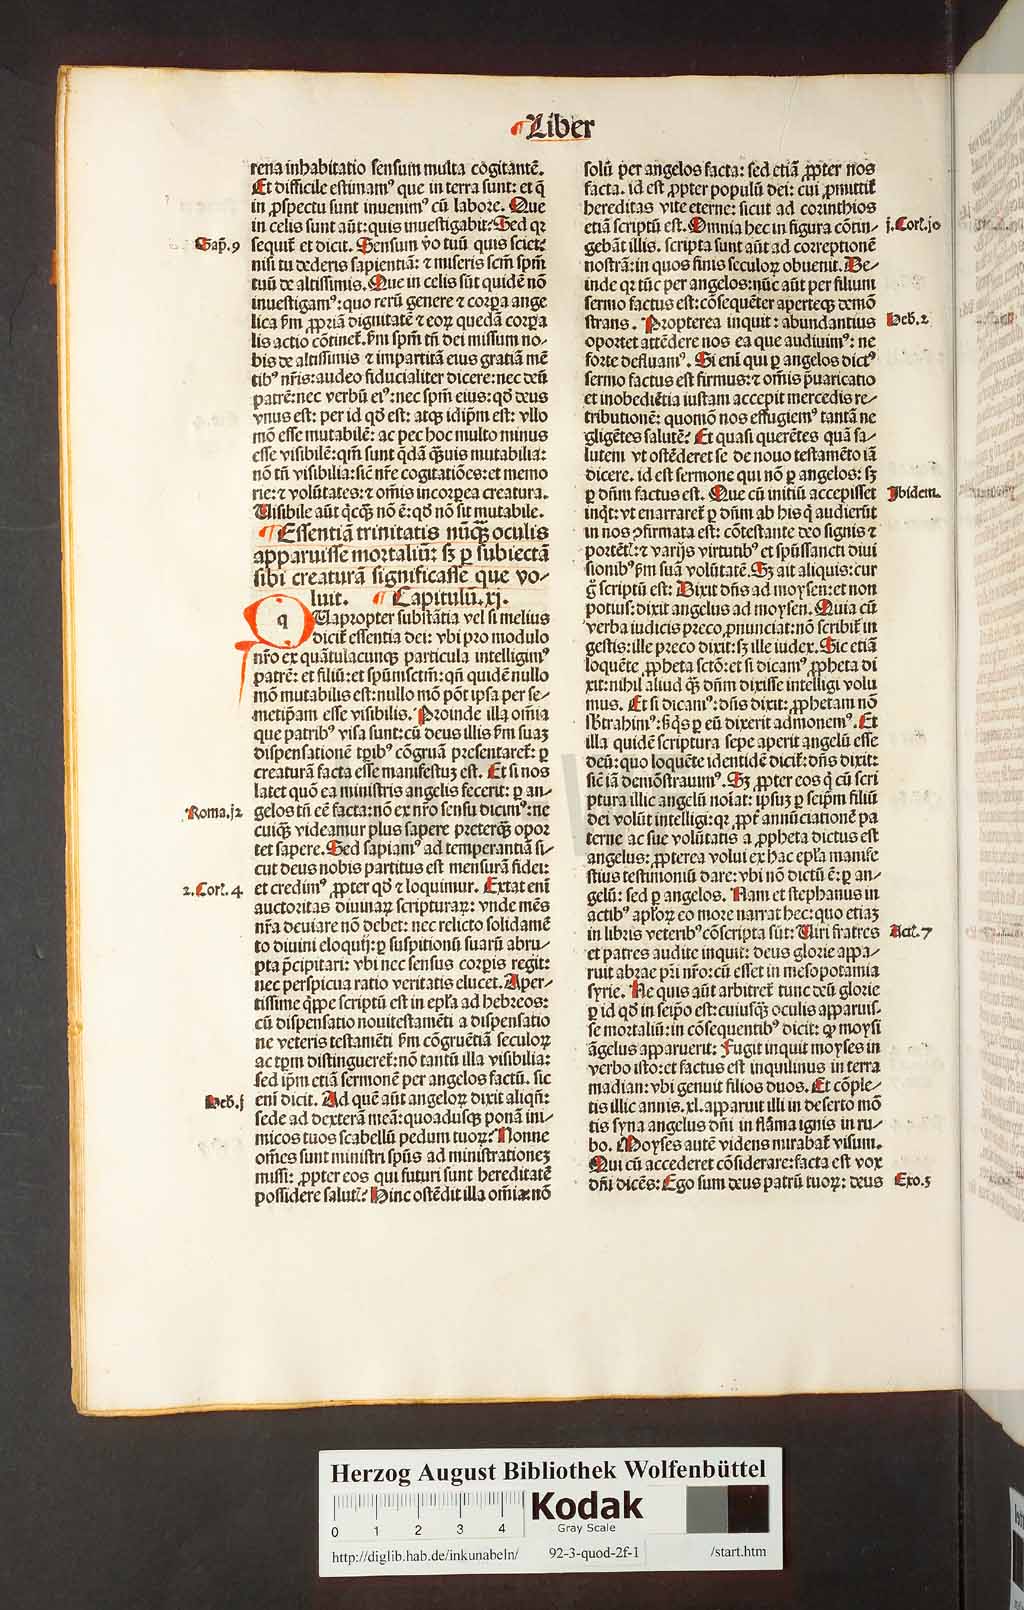 ¶Liber
rena inhabitatio sensum multa cogitantē.
Et difficile estimamꝰ que in terra sunt: et q̄
in ꝓspectu sunt inuenimꝰ cū labore. Que
in celis sunt aūt: quis inuestigabit? Sed qꝛ
Sap̄. 9
sequit̄ et dicit. Sensum v̄o tuū quis sciet:
nisi tu dederis sapientiā: ⁊ miseris scm̄ spm̄
tuū de altissimis. Que in celis sūt quidē nō
inuestigamꝰ: quo rerū genere ⁊ corꝑa ange
lica ẜm ꝓpriā dignitatē ⁊ eoꝝ quedā corꝑa
lis actio cōtinet̄. ẜm spm̄ tn̄ dei missum no-
bis de altissimis ⁊ impartitā eius gratiā mē
tibꝰ nr̄is: audeo fiducialiter dicere: nec deū
patrē: nec verbū eiꝰ: nec spm̄ eius: qd̄ deus
vnus est: per id qd̄ est: atqꝫ idip̄m est: vllo
mō esse mutabilē: ac per hoc multo minus
esse visibilē: qm̄ sunt q̄dā q̄ꝫuis mutabilia:
nō tn̄ visibilia: sic̄ nr̄e cogitatiōes: et memo
rie: ⁊ volūtates: ⁊ om̄is incorꝑea creatura.
Uisibile aūt qͥcqͣꝫ nō ē: qd̄ nō sit mutabile.
¶Essentiā trinitatis nūqͣꝫ oculis
apparuisse mortaliū: sꝫ ꝑ subiectā
sibi creaturā significasse que vo-
luit. ¶ Capitulū. xj.
q Uapropter substātia vel si melius
dicit̄ essentia dei: vbi pro modulo
nr̄o ex quātulacunqꝫ particula intelligimꝰ
patrē: et filiū: et spūmsctm̄: qn̄ quidē nullo
mō mutabilis est: nullo mō pōt ipsa per se-
metip̄am esse visibilis. Proinde illa om̄ia
que patribꝰ visa sunt: cū deus illis ẜm suaꝫ
dispensationē tp̄ibꝰ cōgruā presentaret̄: ꝑ
creaturā facta esse manifestuꝫ est. Et si nos
latet quō ea ministris angelis fecerit: ꝑ an-
Roma. j2
gelos tn̄ eē facta: nō ex nr̄o sensu dicimꝰ: ne
cuiqͣꝫ videamur plus sapere preterqͣꝫ opor
tet sapere. Sed sapiamꝰ ad temperantiā si-
cut deus nobis partitus est mensurā fidei:
2. Cor̄. 4
et credimꝰ ꝓpter qd̄ ⁊ loquimur. Extat eni
auctoritas diuinaꝝ scripturaꝝ: vnde mēs
nr̄a deuiare nō debet: nec relicto solidamē
to diuini eloquij: ꝑ suspitionū suarū abru-
pta p̄cipitari: vbi nec sensus corꝑis regit:
nec perspicua ratio veritatis elucet. Aper-
tissime qͥppe scriptū est in ep̄la ad hebreos:
cū dispensatio nouitestamēti a dispensatio
ne veteris testamēti ẜm cōgruētiā seculoꝝ
ac tp̄m distingueret̄: nō tantū illa visibilia:
sed ip̄m etiā sermonē per angelos factū. sic
Heb. j
eni dicit. Ad quē aūt angeloꝝ dixit aliqn̄:
sede ad dexterā meā: quoadusqꝫ ponā ini-
micos tuos scabellū pedum tuoꝝ? Nonne
om̄es sunt ministri spūs ad ministrationeꝫ
missi: ꝓpter eos qui futuri sunt hereditatē
possidere salut̄? Hinc ostēdit illa om̄ia: nō
solū per angelos facta: sed etiā ꝓpter nos
facta. id est ꝓpter populū dei: cui ꝓmittit̄
hereditas vite eterne: sicut ad corinthios
etiā scriptū est. Omnia hec in figura cōtin-
j. Cor̄. jo
gebāt illis. scripta sunt aūt ad correptionē
nostrā: in quos finis seculoꝝ obuenit. De-
inde qꝛ tūc per angelos: nūc aūt per filium
sermo factus est: cōsequēter aperteqꝫ demō
strans. Propterea inquit: abundantius
Heb. 2
oportet attēdere nos ea que audiuimꝰ: ne
forte defluamꝰ. Si eni qui ꝑ angelos dictꝰ
sermo factus est firmus: ⁊ om̄is p̄uaricatio
et inobediētia iustam accepit mercedis re-
tributionē: quomō nos effugiemꝰ tantā ne
gligētes salutē? Et quasi querētes quā sa-
lutem vt ostēderet se de nouo testamēto iā
dicere. id est sermone qui nō ꝑ angelos: sꝫ
ꝑ dn̄m factus est. Que cū initiū accepisset
Ibidem.
inqͥt: vt enarraret̄ ꝑ dn̄m ab his qͥ audierūt
in nos ꝯfirmata est: cōtestante deo signis ⁊
portēt̄: ⁊ varijs virtutibꝰ et spūssancti diui
sionibꝰ ẜm suā volūtatē. Sꝫ ait aliquis: cur
g̊ scriptū est: Dixit dn̄s ad moysen: et non
potius: dixit angelus ad moysen. Quia cū
verba iudicis preco ꝓnunciat: nō scribit̄ in
gestis: ille preco dixit: sꝫ ille iudex. Sic etiā
loquēte ꝓpheta sctō: et si dicamꝰ ꝓpheta di
xit: nihil aliud qͣꝫ dn̄m dixisse intelligi volu
mus. Et si dicamꝰ: dn̄s dixit: ꝓphetam nō
sb̄trahimꝰ: sꝫ qͥs ꝑ eū dixerit admonemꝰ. Et
illa quidē scriptura sepe aperit angelū esse
deū: quo loquēte identidē dicit̄: dn̄s dixit:
sic̄ iā demōstrauimꝰ. Sꝫ ꝓpter eos qͥ cū scri
ptura illic angelū noīat: ipsuꝫ ꝑ seip̄m filiū
dei volūt intelligi: qꝛ ꝓpt̄ annūciationē pa
terne ac sue volūtatis a ꝓpheta dictus est
angelus: ꝓpterea volui ex hac ep̄la manife
stius testimoniū dare: vbi nō dictū ē: ꝑ an-
gelū: sed ꝑ angelos. Nam et stephanus in
actibꝰ apl̄oꝝ eo more narrat hec: quo etiaꝫ
in libris veteribꝰ cōscripta sūt: Uiri fratres
Act̄. 7
et patres audite inquit: deus glorie appa-
ruit abrae pr̄i nr̄o: cū esset in mesopotamia
syrie. Ne quis aūt arbitret̄ tunc deū glorie
ꝑ id qd̄ in seip̄o est: cuiusqͣꝫ oculis apparuis-
se mortaliū: in cōsequentibꝰ dicit: ꝙ moysi
āgelus apparuerit: Fugit inquit moyses in
verbo isto: et factus est inquilinus in terra
madian: vbi genuit filios duos. Et cōple-
tis illic annis. xl. apparuit illi in deserto mō
tis syna angelus dn̄i in flāma ignis in ru-
bo. Moyses autē videns mirabat̄ visum.
Qui cū accederet cōsiderare: facta est vox
dn̄i dicēs: Ego sum deus patrū tuoꝝ: deus
Exo. 3
Herzog August Bibliothek Wolfenbüttel
0 1 2 3 4
Kodak
Gray Scale
http://diglib.hab.de/inkunabeln/ 92-3-quod-2f-1 /start.htm